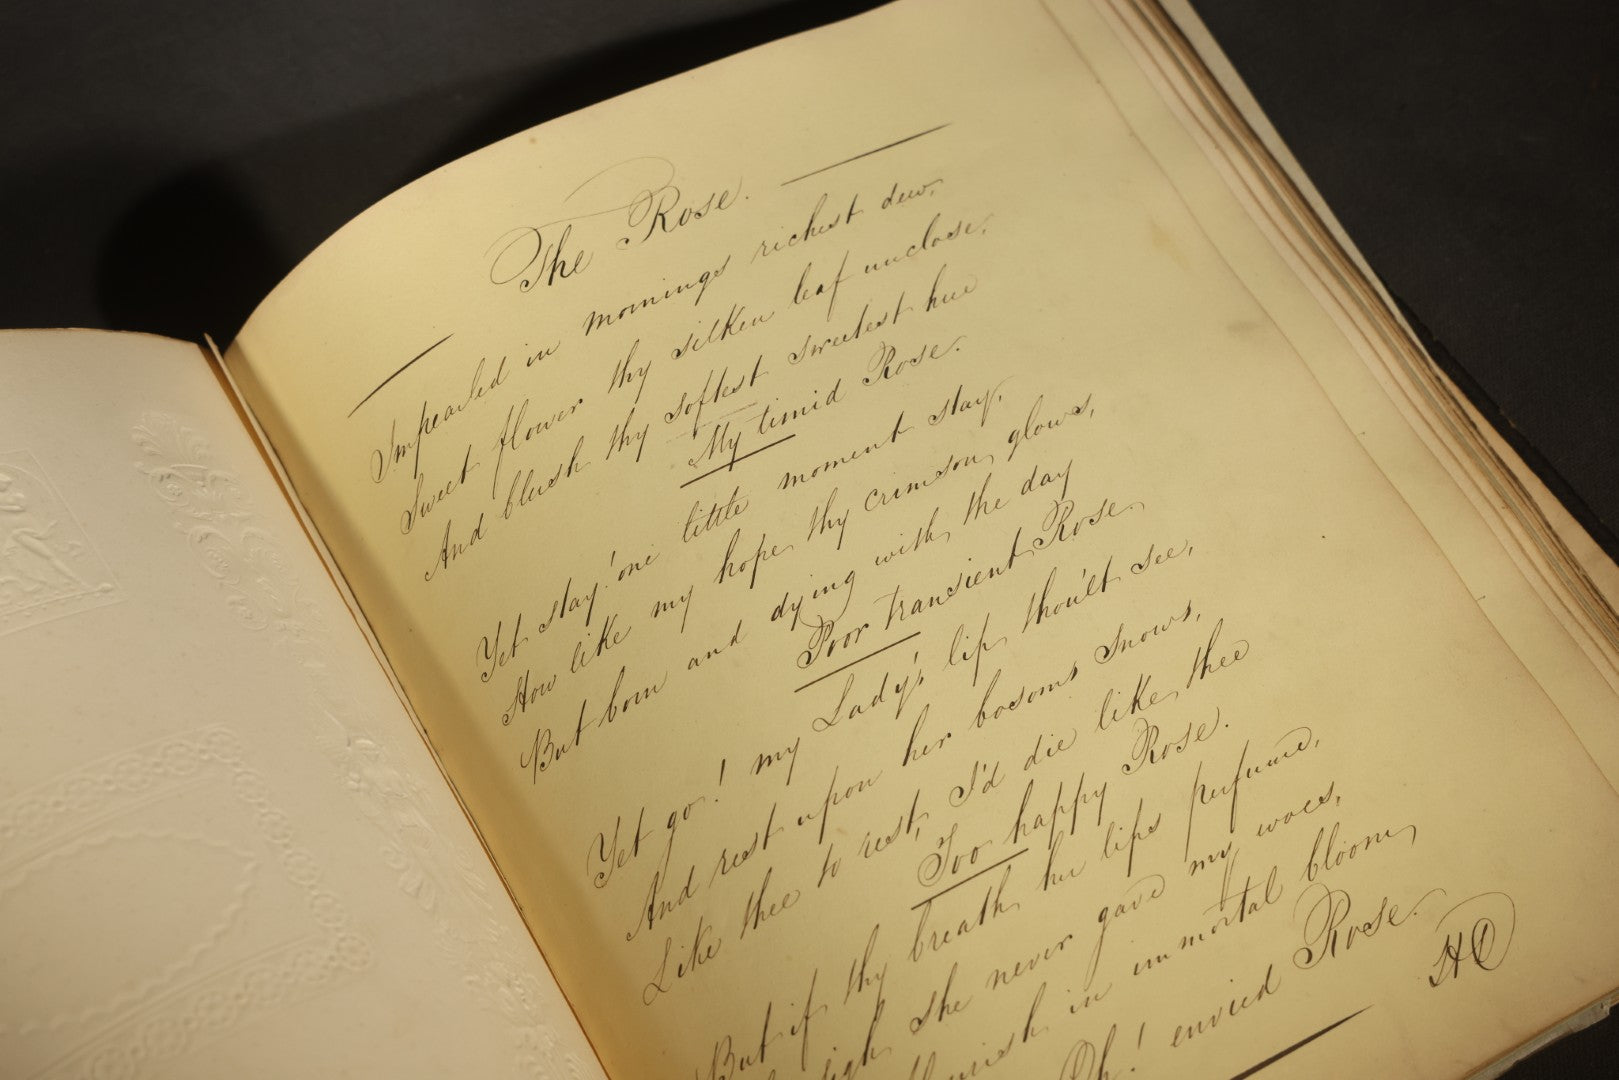 The Rose.
Impearled in mornings richest dew,
Sweet flower thy silken leaf unclose,
And blush thy softest sweetest hue
My timid Rose.
Yet stay! one little moment stay,
How like my hope, thy crimson, glows,
But born and dying with the day
Poor transient Rose.
Yet go! my Lady's lip thou'lt see,
And rest upon her bosoms snows,
Like thee to rest, I'd die like thee
Too happy Rose.
But if thy breath her lips perfume,
sigh she never gave my woes,
flourish in immortal bloom,
Oh! envied Rose.